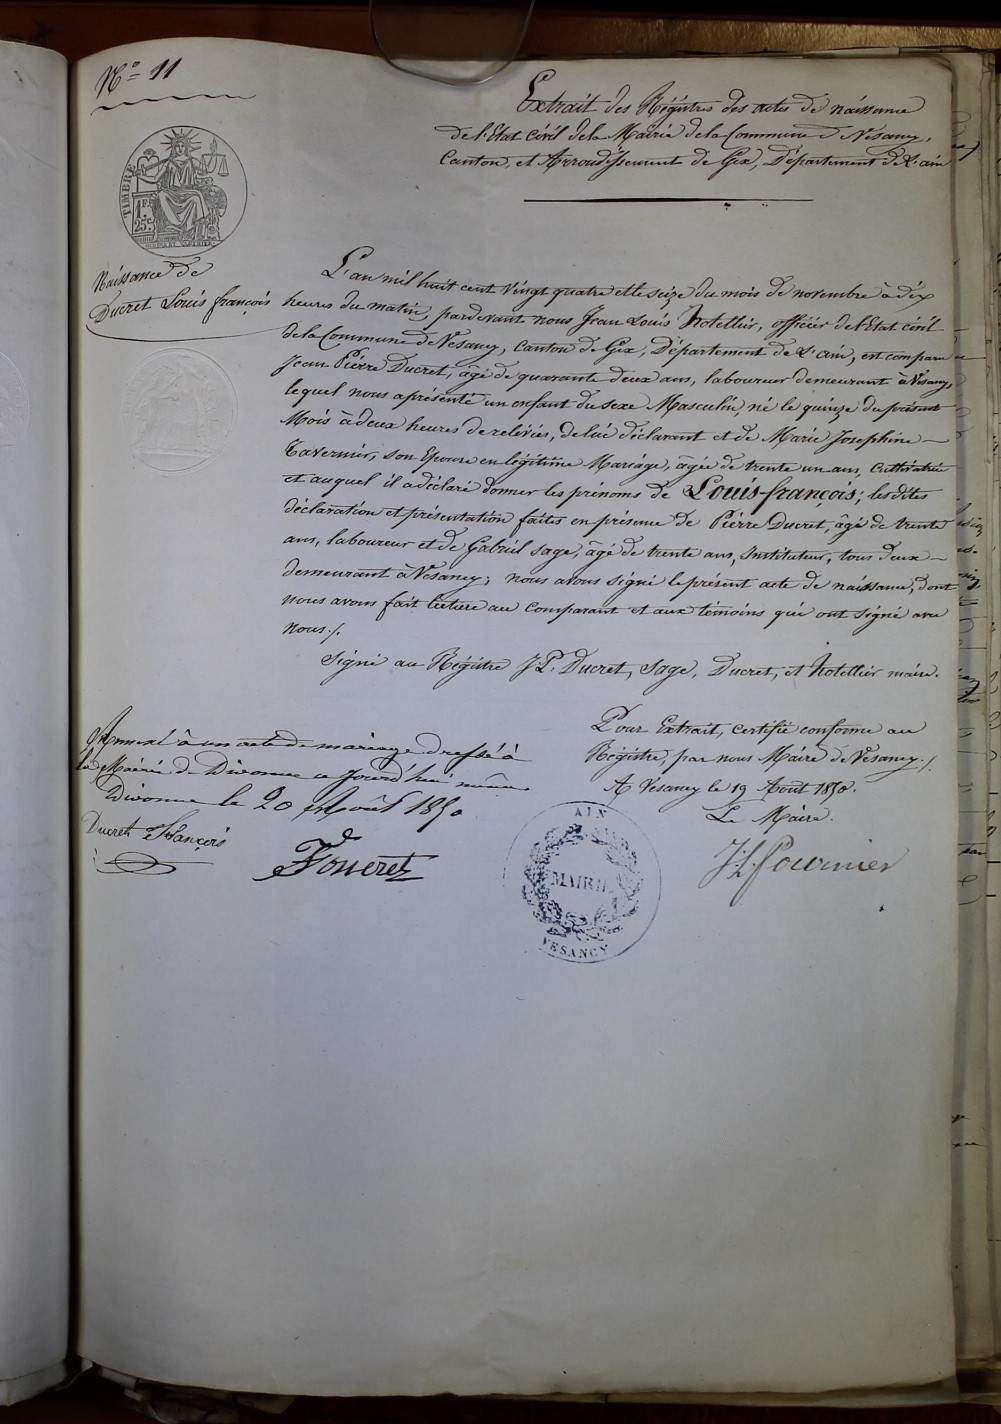 N° 11
Extrait des Régistres des actes de naissance
de l'Etat civil de la Mairie de la Commune de Vesancy,
Canton et Arrondissement de Gex, Département de l'ain
TIMBRE
1 F.
25 c.
Naissance de
Ducret Louis françois
L'an mil huit cent vingt quatre et le seize du mois de novembre à dix
heures du matin, pardevant nous Jean Louis hotellier, officier de l'Etat civil
de la Commune de Vesancy, Canton de Gex, Département de l'ain, est comparu
Jean Pierre Ducret, âgé de quarante deux ans, laboureur demeurant à Vesancy,
lequel nous a présenté un enfant du sexe Masculin né le quinze du présent
Mois à deux heures de relevées, de lui déclarant et de Marie Josephine
Tavernier, son Epouse en légitime Mariage, âgée de trente un ans, Cultivatrice
et auquel il a déclaré donner les prénoms de Louis-françois; les dites
déclaration et présentation faites en présence de Pierre Ducret, âgé de trente
ans, laboureur et de Gabriel Sage, âgé de trente ans, Instituteur, tous deux
demeurant à Vesancy; nous avons signé le présent acte de naissance, dont
nous avons fait lecture au comparant et aux témoins qui ont signé avec
nous ./.
Signé au Régistre J. P. Ducret, Sage, Ducret, et hotellier maire.
Annexé à un acte de mariage dressé à
la Mairie de Divonne ce jourd'hui même
Divonne le 20 Août 1850
Ducret François
Foucret
Pour Extrait, certifié conforme au
Régistre, par nous Maire de Vesancy ./.
A Vesancy le 19 Août 1850.
Le Maire.
J. L. fournier
AIN
MAIRIE
VESANCY